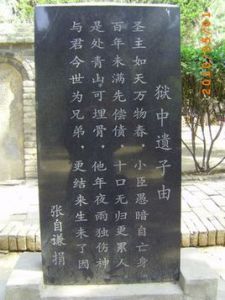 獄中遺子由
圣主如天万物春，小臣愚暗自亡身
百年未满先偿债，十口无归更累人
是处青山可埋骨，他年夜雨独伤神
与君今世为兄弟，更结来生未了因
张自谦 捐